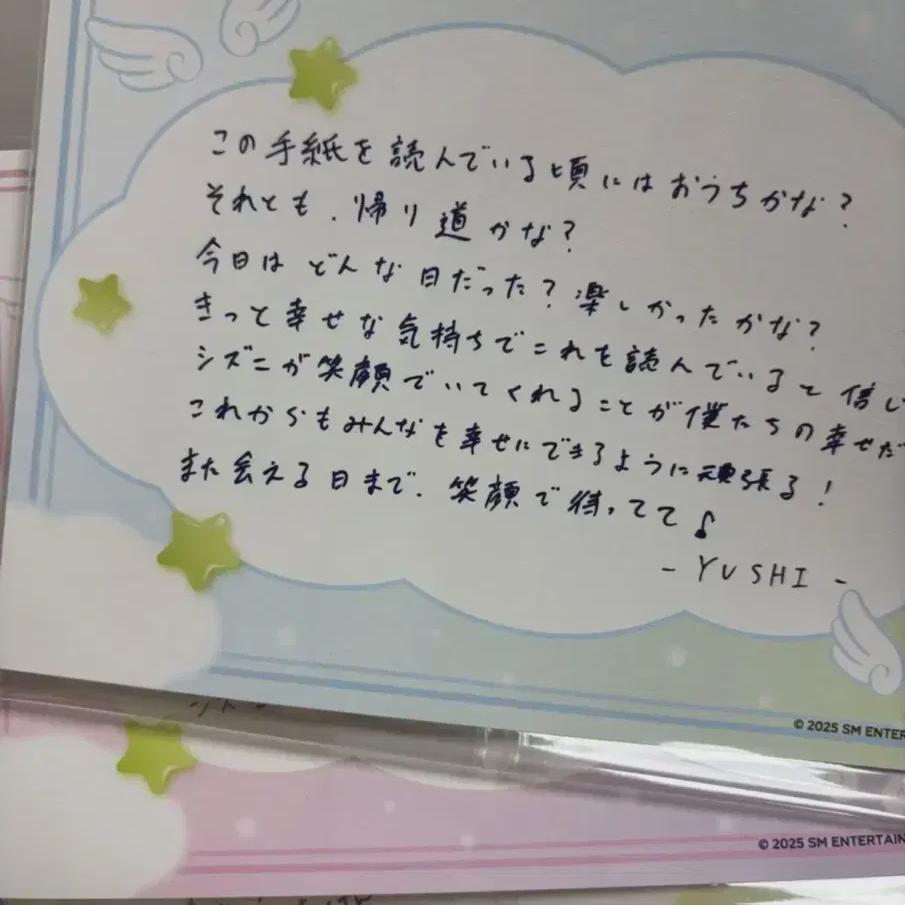 この手紙を読んでいる頃にはおうちかな?
それとも、帰り道かな?
今日はどんな日だった?楽しかったかな?
きっと幸せな気持ちでこれを読んでいると信じ
シズニが笑顔でいてくれることが僕たちの幸せだ
これからもみんなを幸せにできるように頑張る!
また会える日まで、笑顔で待ってて♪
- YUSHI -
© 2025 SM ENTER
© 2025 SM ENTERTAIN